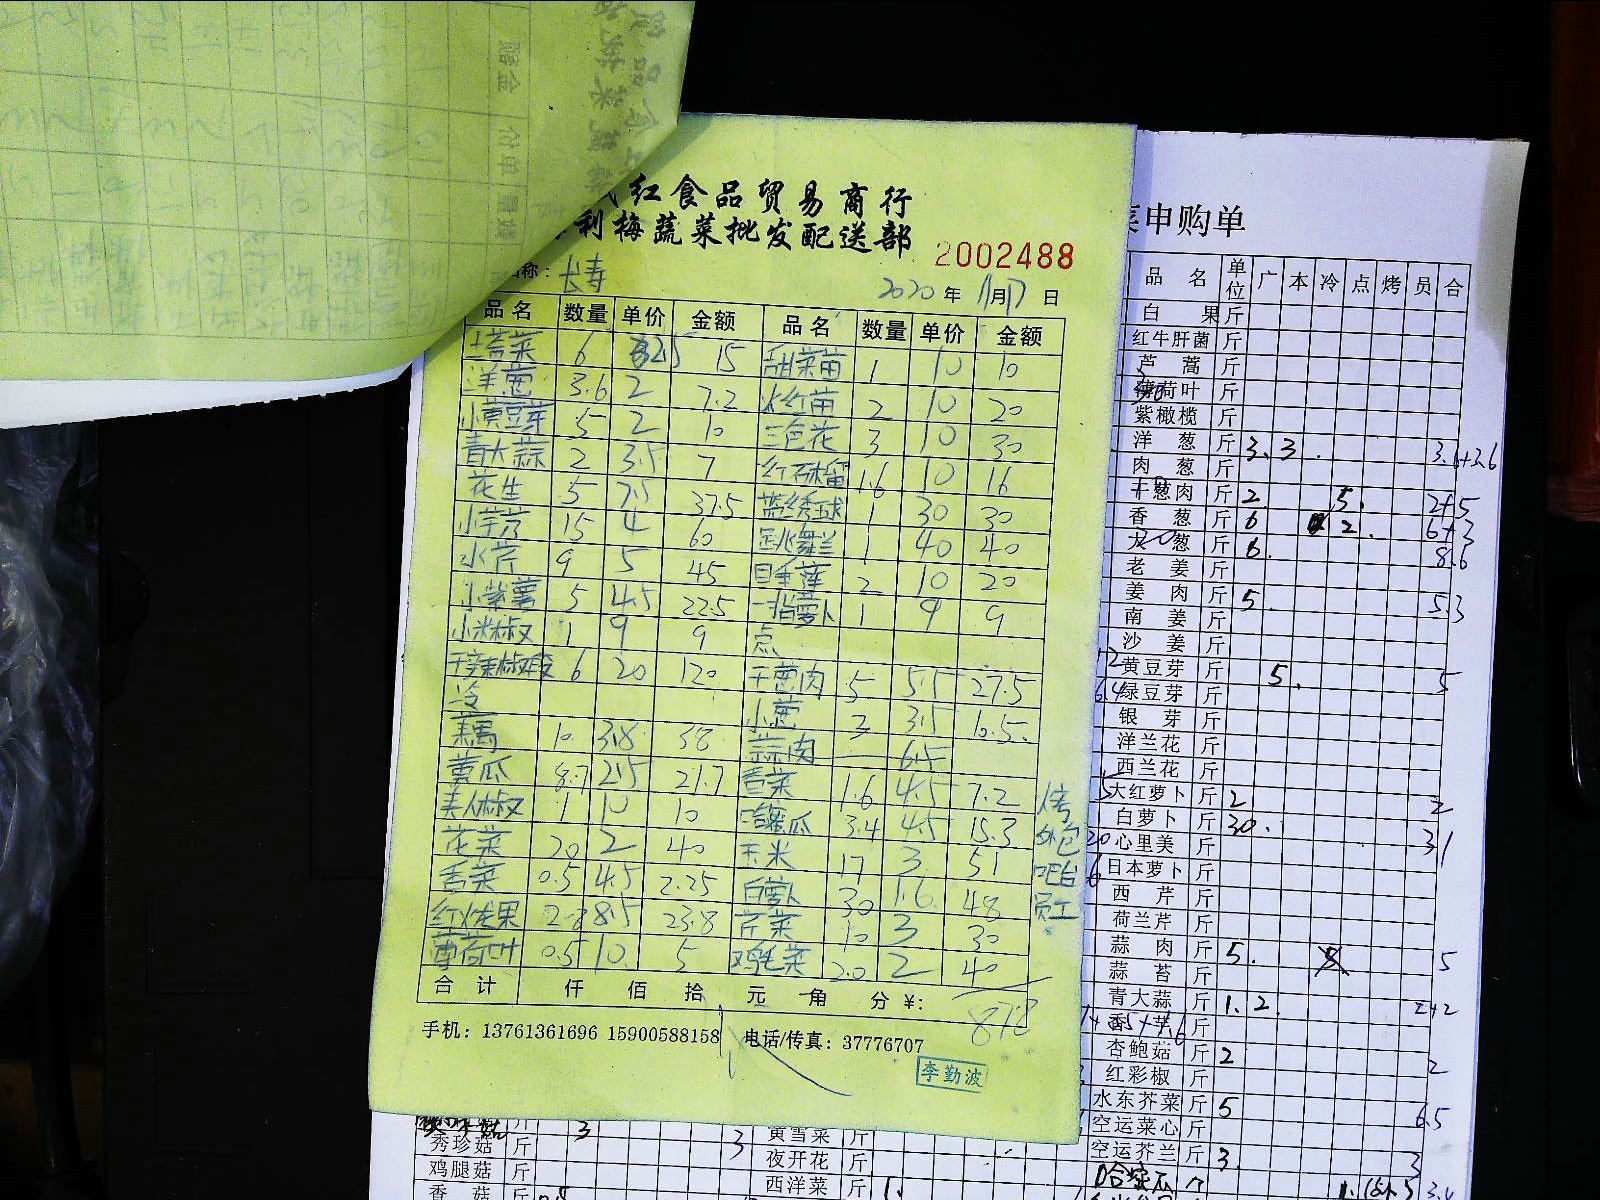 红食品贸易商行
利梅蔬菜批发配送部
2002488
称：长寿
2020年11月17日
品名 数量 单价 金额 品名 数量 单价 金额
6 2.5 15 甜菜苗 1 10 10
洋葱 3.6 2 7.2 火红苗 2 10 20
小黄豆芽 5 2 10 三色花 3 10 30
青大蒜 2 3.5 7 红石榴 1.6 10 16
花生 5 7.5 37.5 蓝绣球 1 30 30
小芋艿 15 4 60 跳舞兰 1 40 40
水芹 9 5 45 2 10 20
小紫薯 5 4.5 22.5 一指萝卜 1 9 9
小米椒 1 9 9 点
干辣椒段 6 20 120 干葱肉 5 5.5 27.5
冷 小葱 3 3.5 10.5
藕 10 3.8 38 蒜肉 — 6.5
黄瓜 8.7 2.5 21.7 香菜 1.6 4.5 7.2
美人椒 1 10 10 哈蜜瓜 3.4 4.5 15.3
花菜 20 2 40 玉米 17 3 51
香菜 0.5 4.5 2.25 白萝卜 30 1.6 48
红火龙果 2.8 8.5 23.8 芹菜 10 3 30
薄荷叶 0.5 10 5 鸡毛菜 20 2 40
烤
外包
吧台
员工
合计 仟 佰 拾 元 角 分 ¥: 878
手机：13761361696 15900588158 电话/传真：37776707
李勤波
菜申购单
品名 单位 广 本 冷 点 烤 员 合
白果 斤
红牛肝菌 斤
芦蒿 斤
薄荷叶 斤
紫橄榄 斤
洋葱 斤 3. 3. 3.6+3.6
肉葱 斤
干葱肉 斤 2 5. 2+5
香葱 斤 6 2. 6+3
大葱 斤 6. 8.6
老姜 斤
姜肉 斤 5. 5.3
南姜 斤
沙姜 斤
黄豆芽 斤 5. 5
绿豆芽 斤
银芽 斤
洋兰花 斤
西兰花 斤
大红萝卜 斤 2 2
白萝卜 斤 30. 31
心里美 斤
日本萝卜 斤
西芹 斤
荷兰芹 斤
蒜肉 斤 5. 5
蒜苔 斤
青大蒜 斤 1. 2. 2+2
香芋 斤
杏鲍菇 斤 2 2
红彩椒 斤
水东芥菜 斤 5 6.5
空运菜心 斤
空运芥兰 斤 3. 3
哈蜜瓜 个
3 黄雪菜 斤
秀珍菇 斤 3 夜开花 斤
鸡腿菇 斤 西洋菜 斤 1.
香菇 斤